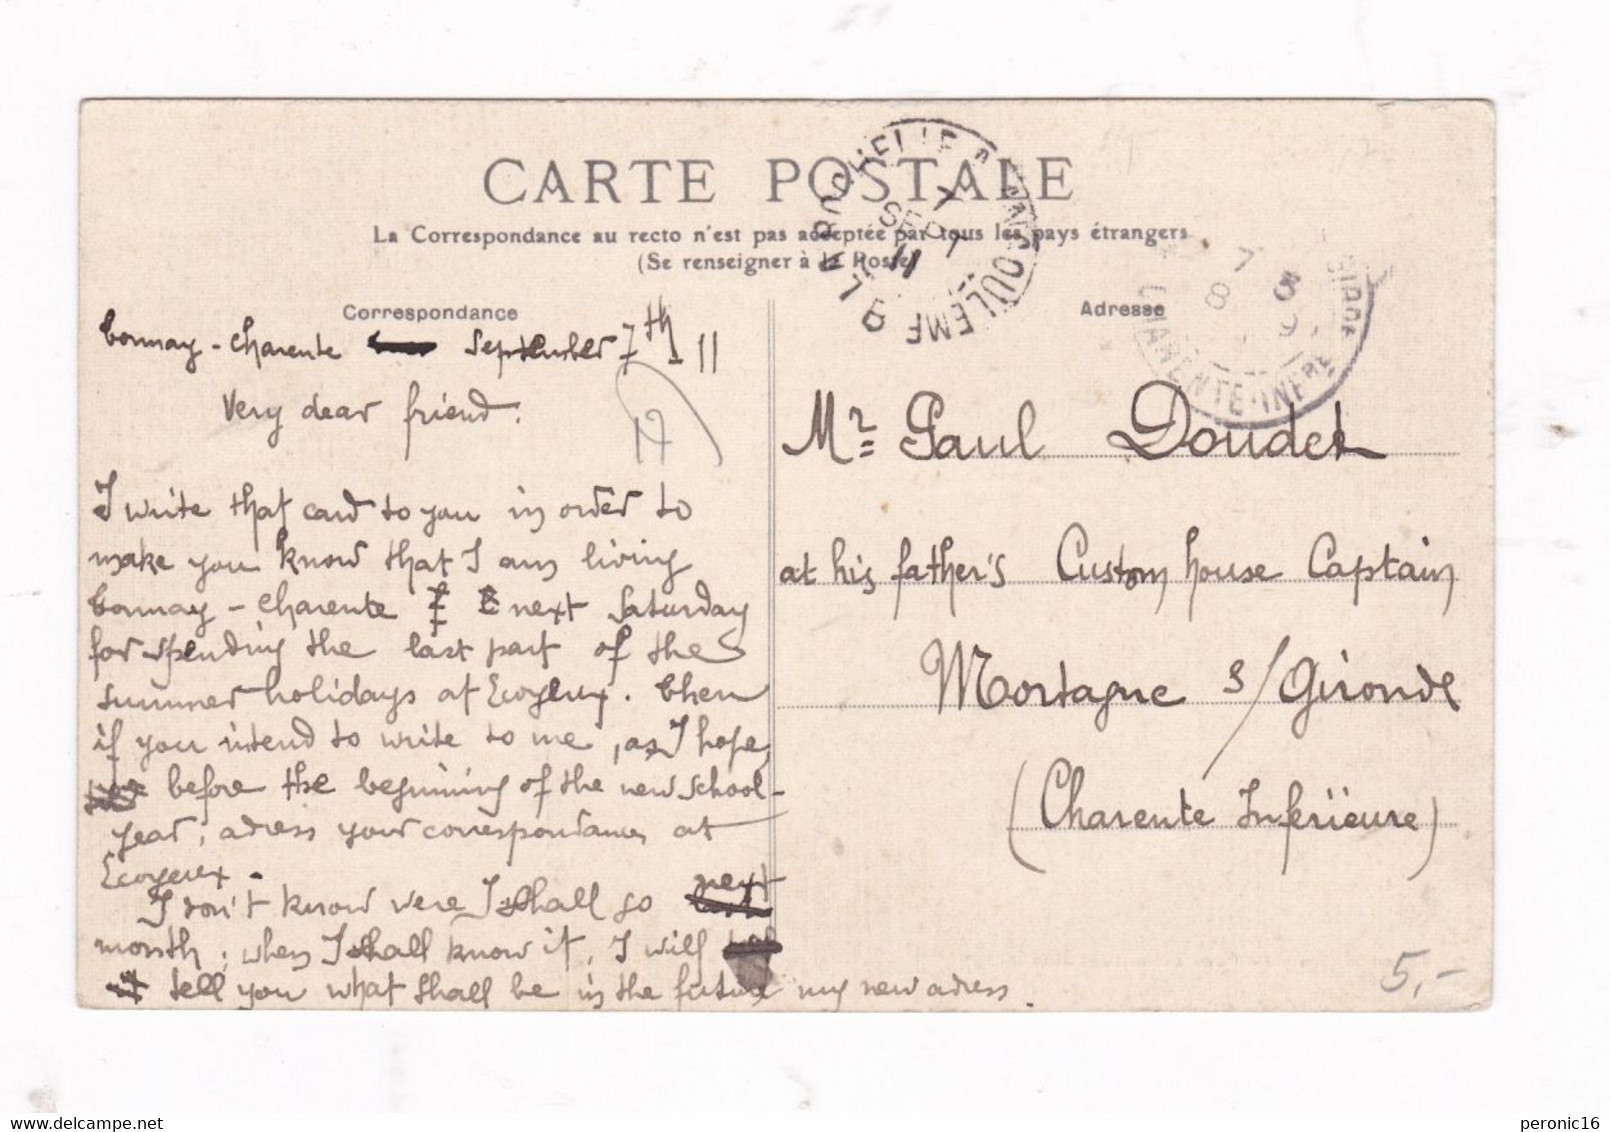 CARTE POSTALE
La Correspondance au recto n'est pas acceptée par tous les pays étrangers
(Se renseigner à la Poste)
Correspondance
Adresse
LA ROCHELLE A ANGOULEME
7
SEPT
11
CHARENTE-INFRE
Tonnay-Charente September 7th 11
Very dear friend:
17
I write that card to you in order to
make you know that I am living
Tonnay-Charente next Saturday
for spending the last part of the
summer holidays at Ecoyeux. Then
if you intend to write to me, as I hope,
before the beginning of the new school-
year, adress your correspondances at
Ecoyeux.
I don't know were I shall go next
month; when I shall know it, I will
tell you what shall be in the future my new adress.
Mr Paul Doudet
at his father's Custom house Captain
Mortagne s/Gironde
(Charente Inférieure)
5,-
delcampe.net
peronic16